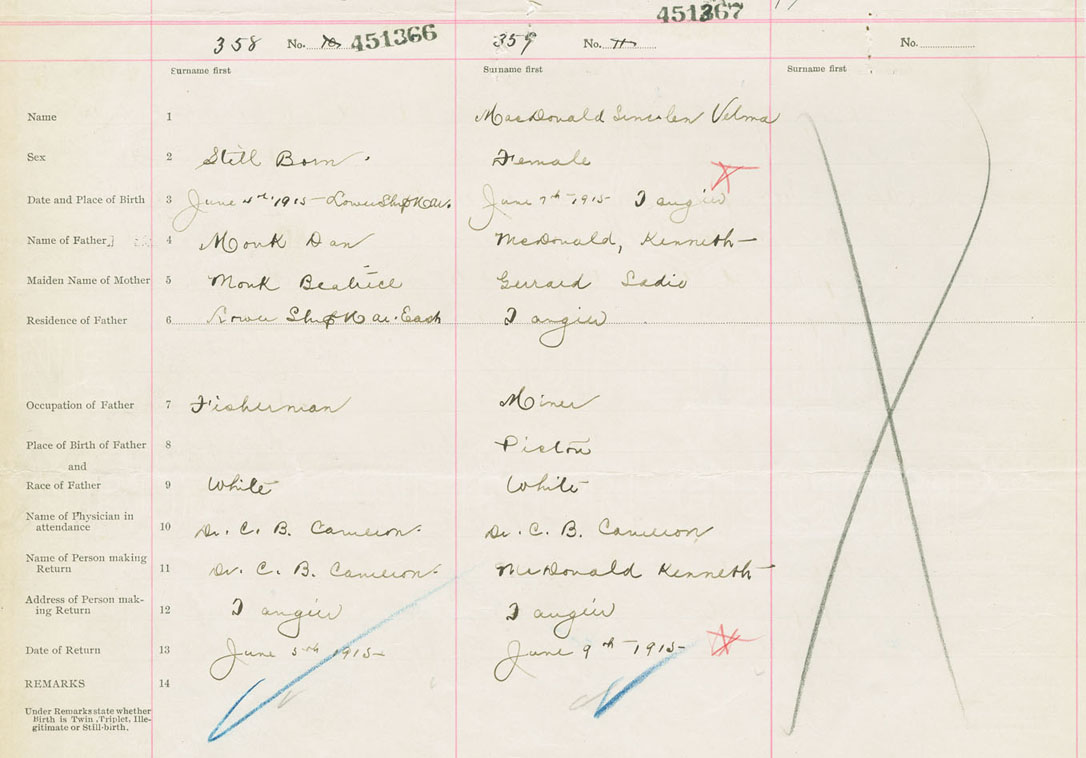 451367
358 No. 10 451366
359 No. 11
No.
Surname first Surname first Surname first
Name 1 MacDonald Velma
Sex 2 Still Born. Female
Date and Place of Birth 3 June 4th 1915 - Lower Ship Har. June 7th 1915 Tangier
Name of Father 4 Monk Dan McDonald, Kenneth
Maiden Name of Mother 5 Monk Beatrice Gerrard Sadie
Residence of Father 6 Lower Ship Har. East Tangier
Occupation of Father 7 Fisherman Miner
Place of Birth of Father 8 Pictou
and
Race of Father 9 White White
Name of Physician in
attendance 10 Dr. C. B. Cameron. Dr. C. B. Cameron
Name of Person making
Return 11 Dr. C. B. Cameron. McDonald Kenneth
Address of Person mak-
ing Return 12 Tangier Tangier
Date of Return 13 June 5th 1915 June 9th 1915
REMARKS 14
Under Remarks state whether
Birth is Twin, Triplet, Ille-
gitimate or Still-birth.